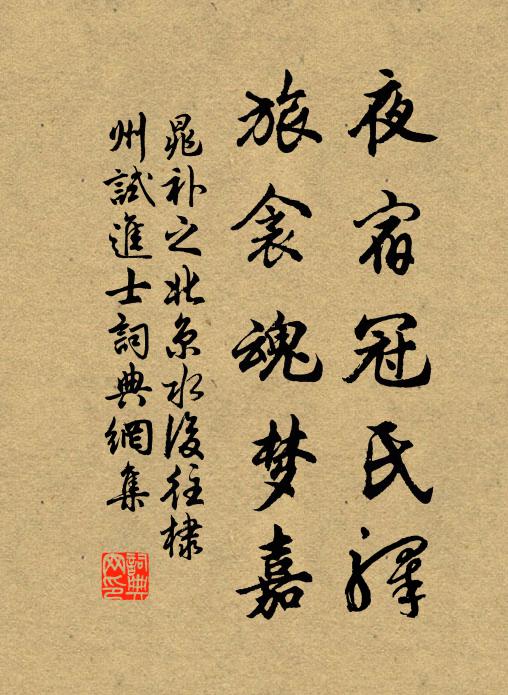 夜宿冠氏驛
旅衾魂梦嘉
晁补之北京水後往棣
州試進士詞典網集
詞典
网印